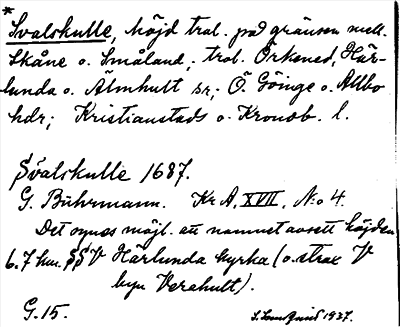 * Svalskulle, höjd trol. på gränsen mell.
Skåne o. Småland, trol. Örkened, Här-
lunda o. Älmhult sr; Ö. Göinge o. Allbo
hdr; Kristianstads o. Kronob. l.
Svalskulle 1687.
G. Buhrmann. Kr A, XVII, N:o 4.
Det synes möjl. att namnet avsett höjden
6.7 km. SSV Härlunda kyrka (o. strax V
byn Verahult).
G. 15.
1937.